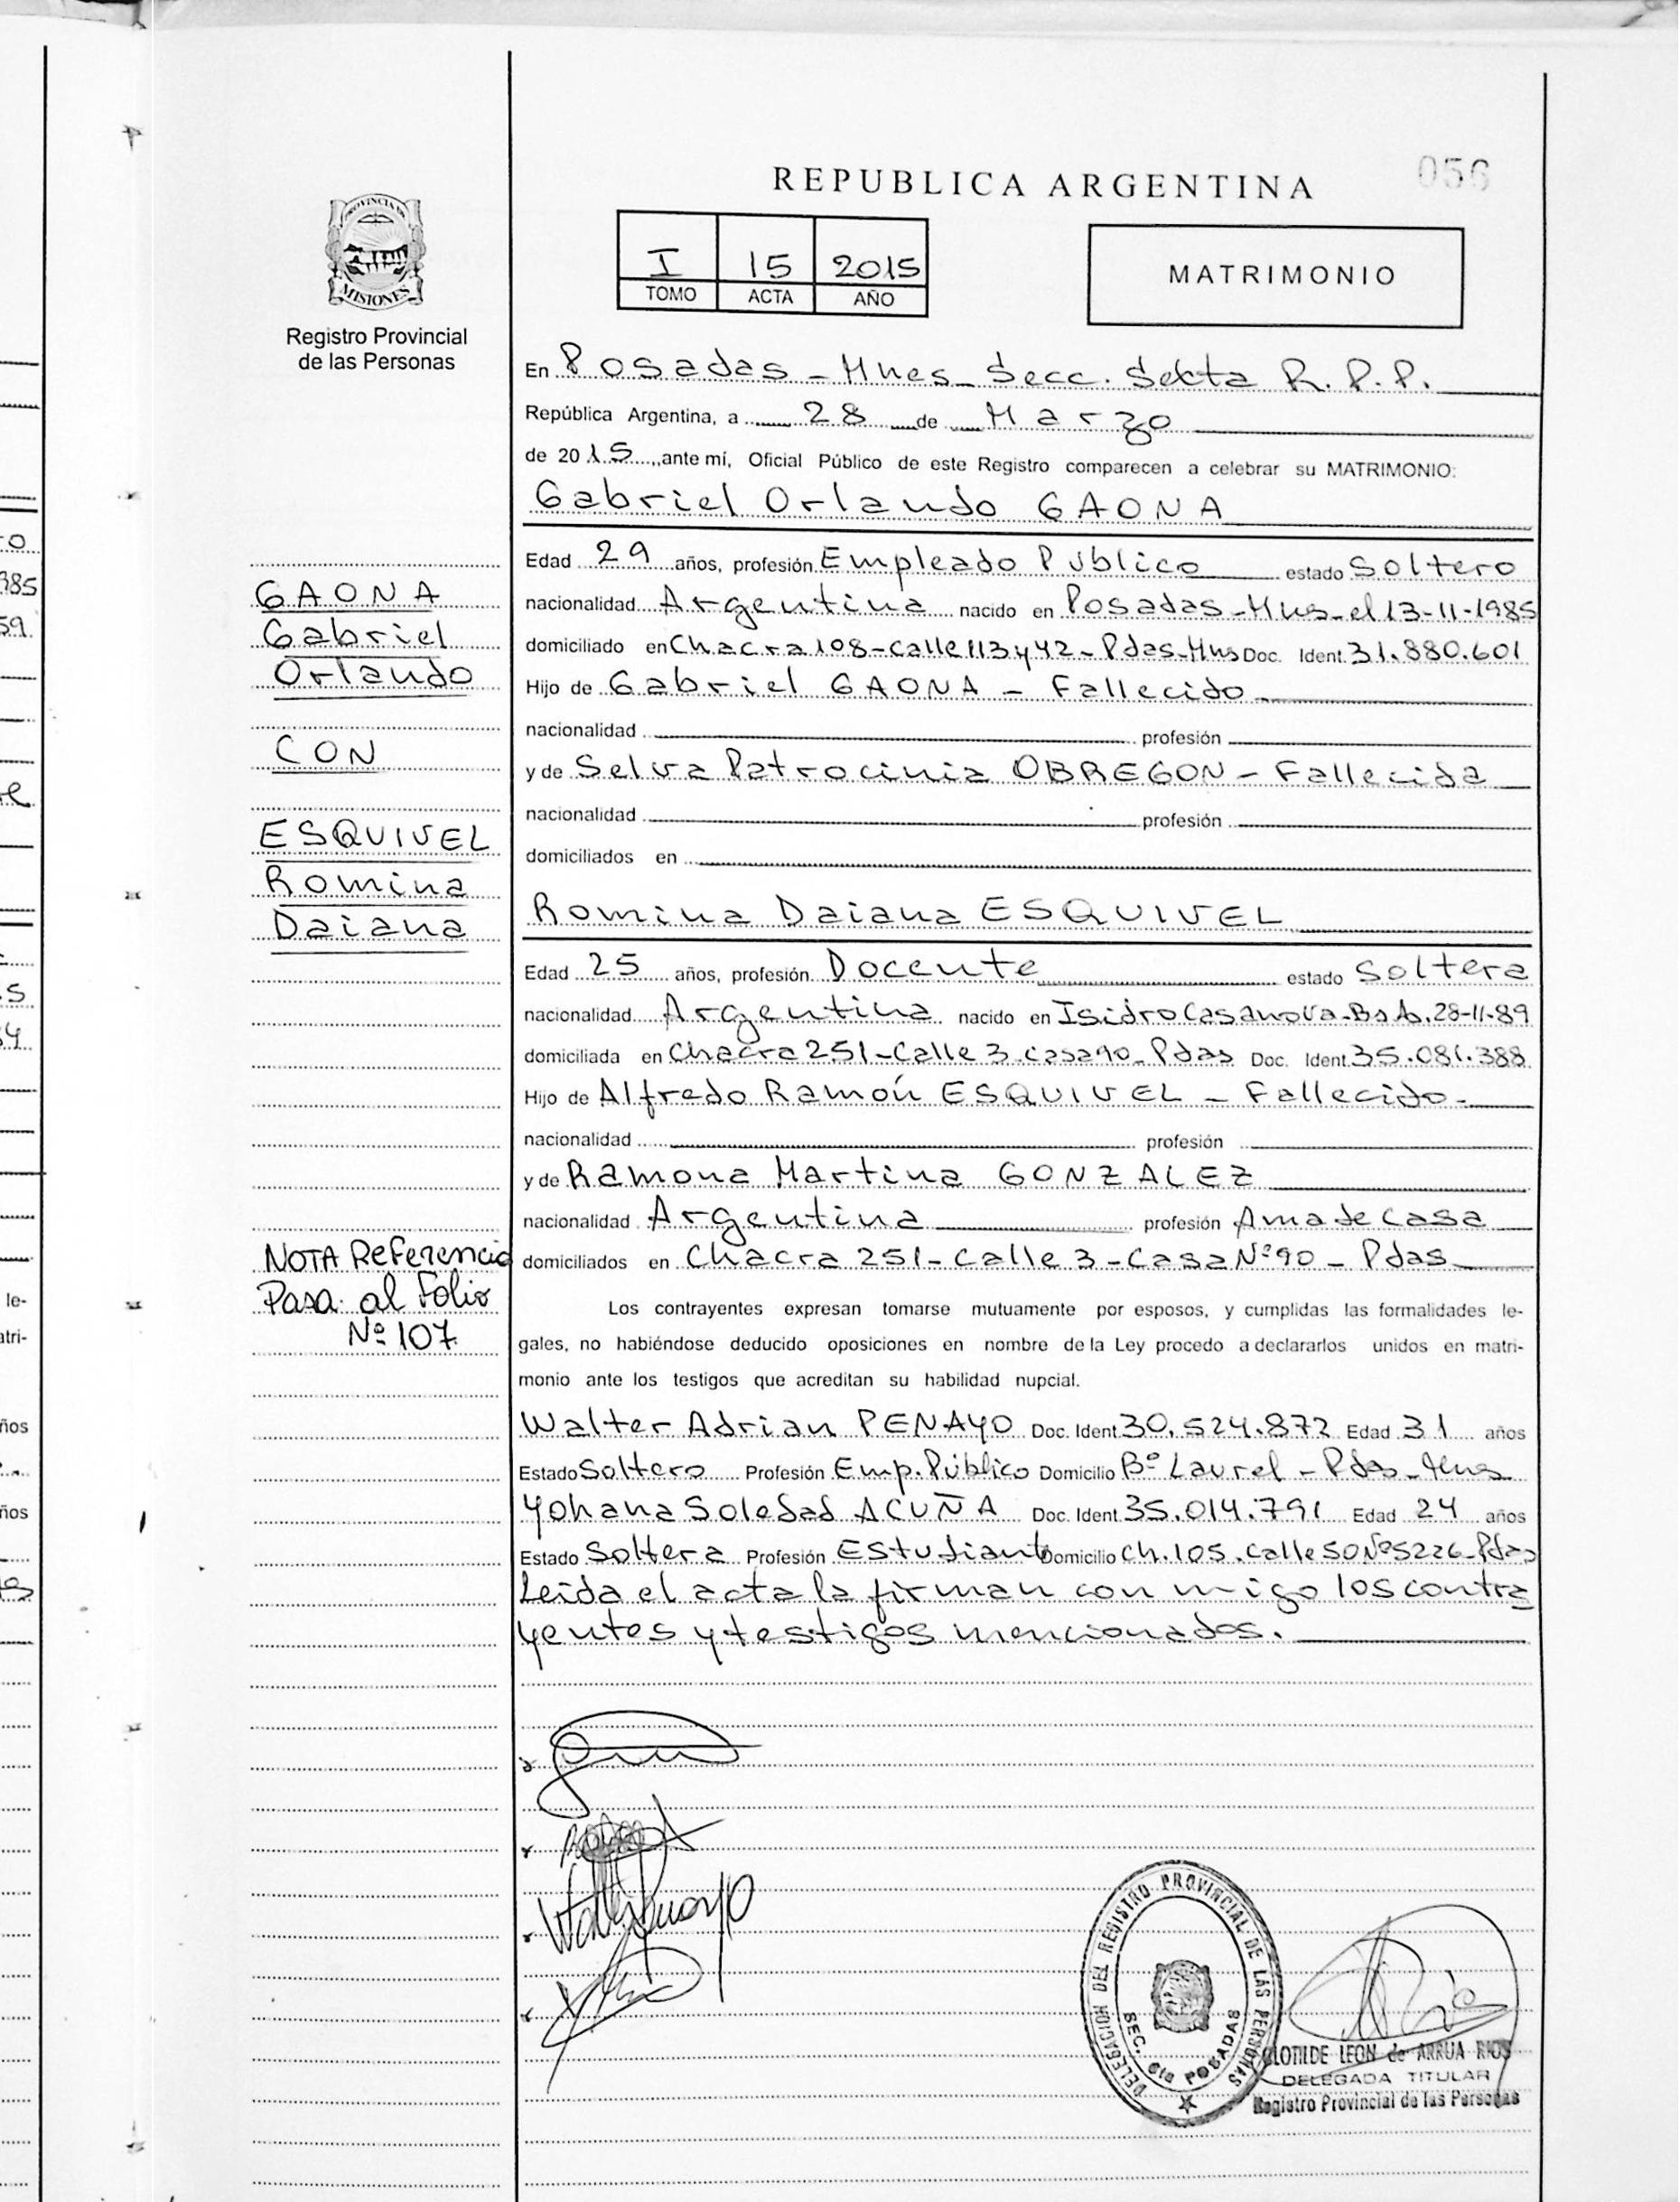 REPUBLICA ARGENTINA
056
PROVINCIA DE
MISIONES
Registro Provincial
de las Personas
I 15 2015
TOMO ACTA AÑO
MATRIMONIO
En Posadas - Mnes - Secc. Sexta R.P.P.
República Argentina, a 28 de Marzo
de 2015, ante mí, Oficial Público de este Registro comparecen a celebrar su MATRIMONIO:
Gabriel Orlando GAONA
Edad 29 años, profesión Empleado Público estado Soltero
nacionalidad Argentina nacido en Posadas - Mns - el 13-11-1985
domiciliado en Chacra 108 - Calle 113 y 42 - Pdas - Mns Doc. Ident. 31.880.601
Hijo de Gabriel GAONA - Fallecido
nacionalidad profesión
y de Selva Patrocinia OBREGON - Fallecida
nacionalidad profesión
domiciliados en
Romina Daiana ESQUIVEL
Edad 25 años, profesión Docente estado Soltera
nacionalidad Argentina nacido en Isidro Casanova - Bs As. 28-11-89
domiciliada en Chacra 251 - Calle 3 - casa 90 - Pdas Doc. Ident. 35.081.388
Hijo de Alfredo Ramón ESQUIVEL - Fallecido -
nacionalidad profesión
y de Ramona Martina GONZALEZ
nacionalidad Argentina profesión Ama de Casa
domiciliados en Chacra 251 - Calle 3 - Casa Nº 90 - Pdas
Los contrayentes expresan tomarse mutuamente por esposos, y cumplidas las formalidades le-
gales, no habiéndose deducido oposiciones en nombre de la Ley procedo a declararlos unidos en matri-
monio ante los testigos que acreditan su habilidad nupcial.
Walter Adrian PENAYO Doc. Ident. 30.524.872 Edad 31 años
Estado Soltero Profesión Emp. Público Domicilio Bº Laurel - Pdas - Mns
Yohana Soledad ACUÑA Doc. Ident. 35.014.791 Edad 24 años
Estado Soltera Profesión Estudiante Domicilio Ch. 105. Calle 50 Nº 5226 - Pdas
Leida el acta la firman con migo los contra
yentes y testigos mencionados.
GAONA
Gabriel
Orlando
CON
ESQUIVEL
Romina
Daiana
NOTA Referencia
Pasa al Folio
Nº 107
DELEGACION DEL REGISTRO PROVINCIAL DE LAS PERSONAS
SEC. 6ta POSADAS
CLOTILDE LEON de ARRUA RIOS
DELEGADA TITULAR
Registro Provincial de las Personas